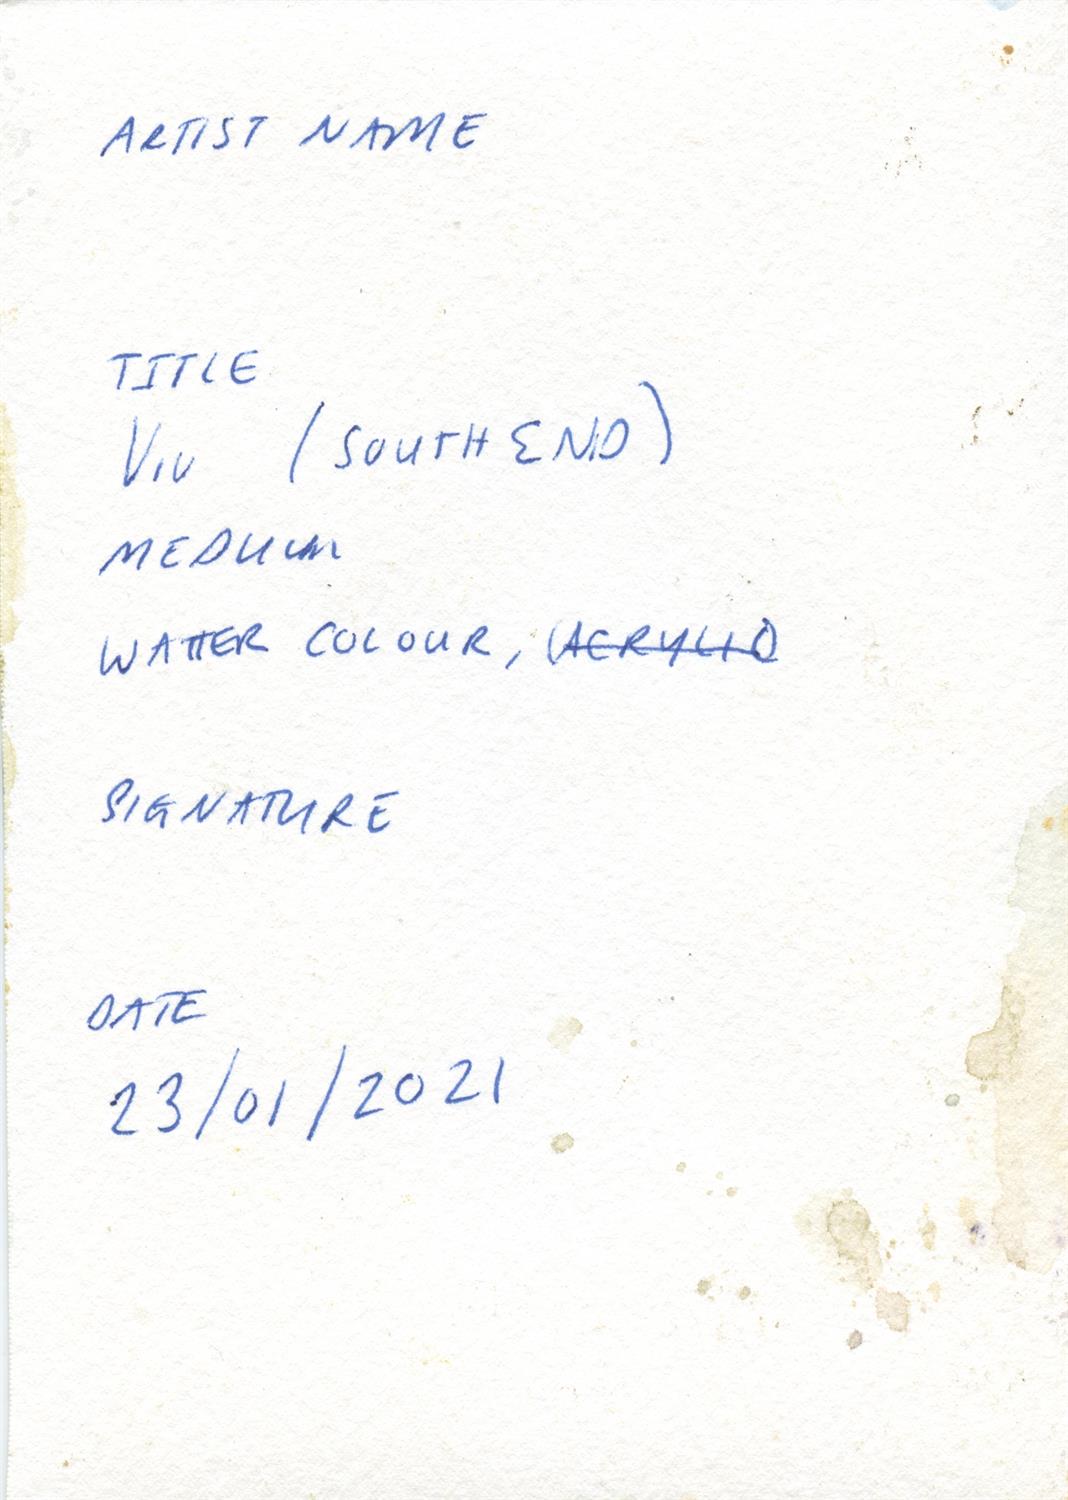 ARTIST NAME
TITLE
Viv (SOUTHEND)
MEDIUM
WATTER COLOUR, (ACRYLIC)
SIGNATURE
DATE
23/01/2021